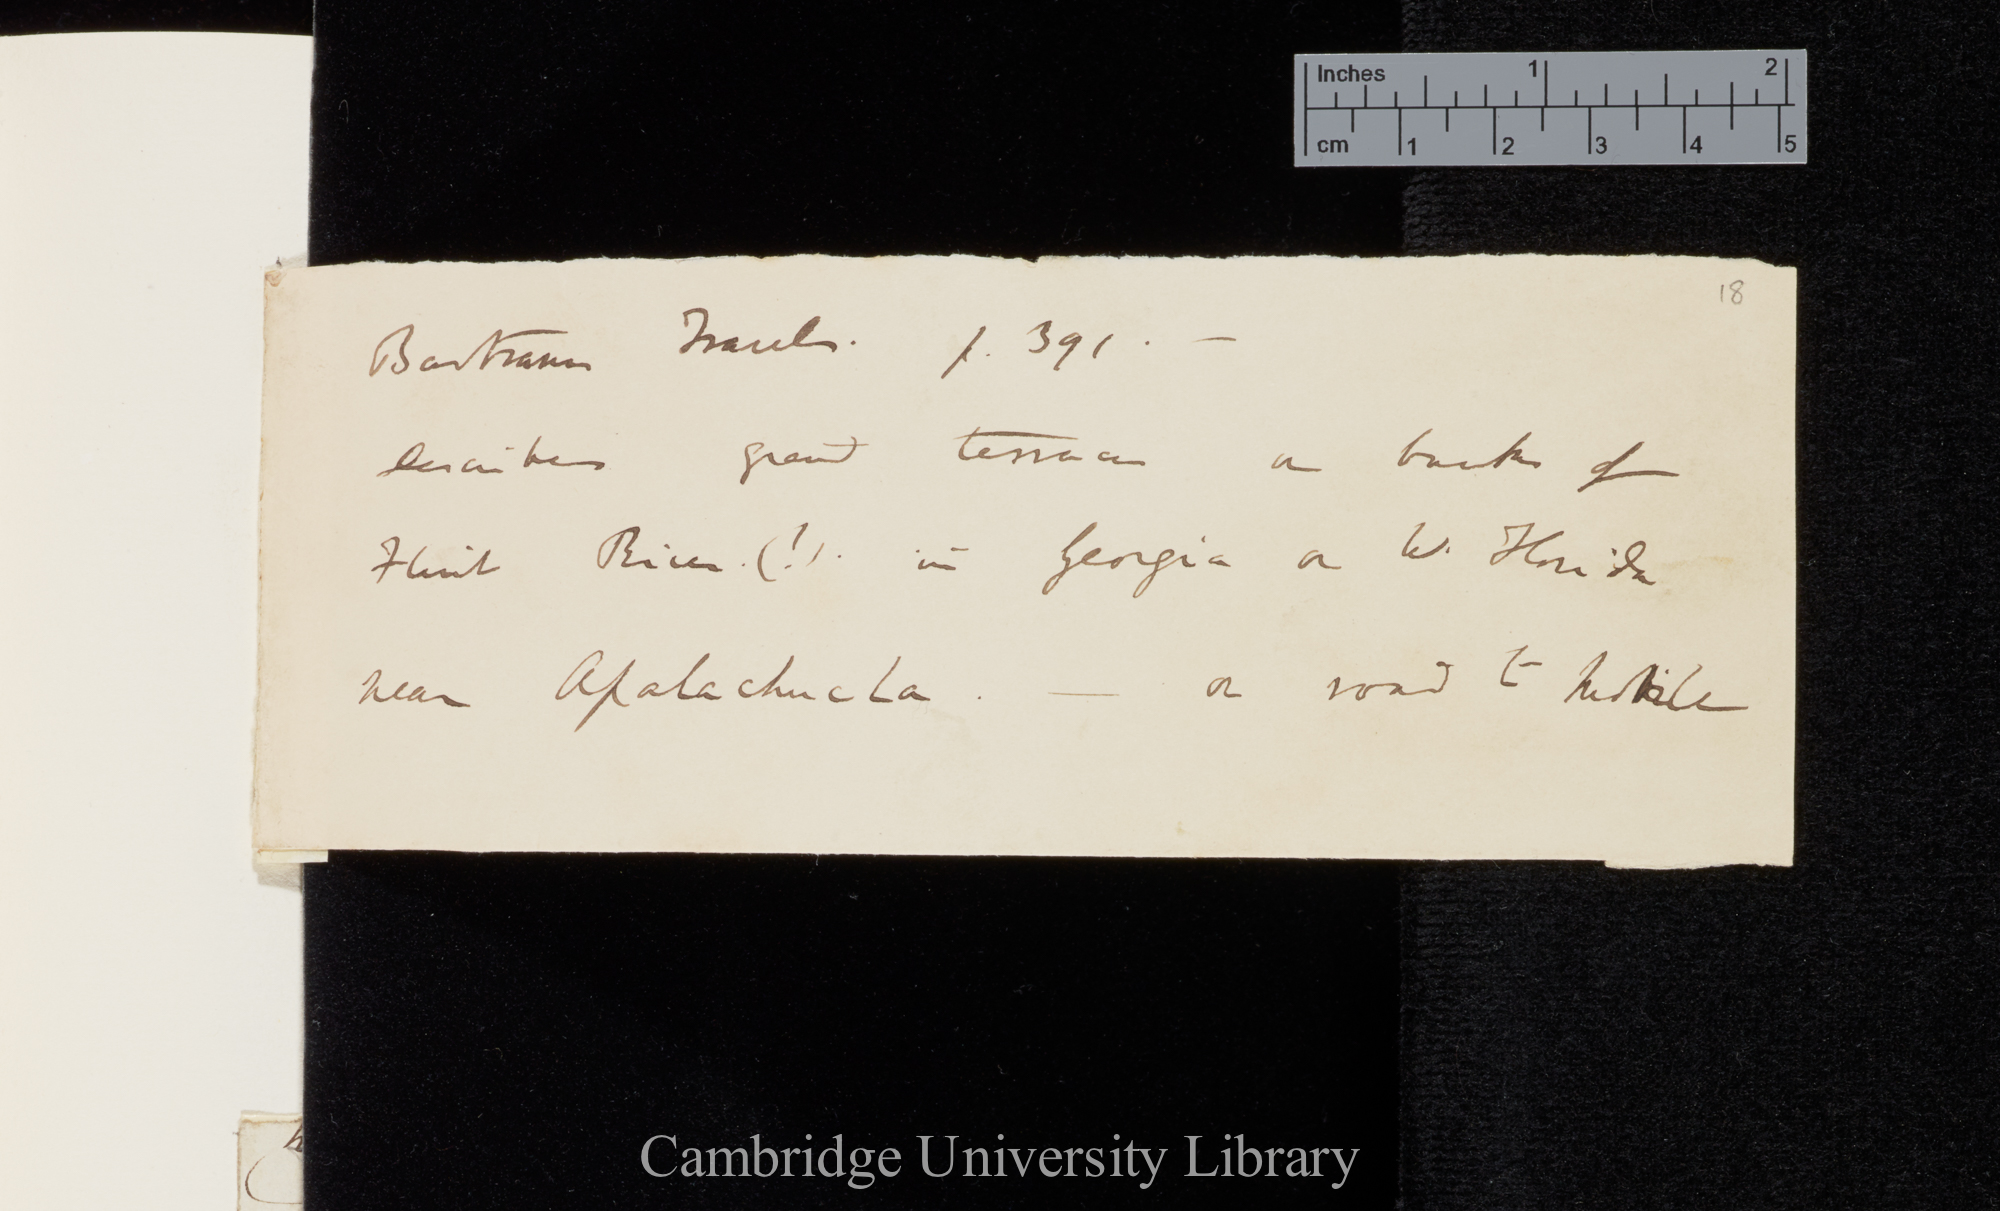 Inches 1 2
cm 1 2 3 4 5
18
Bartram Travels. p. 391. —
describes great terraces on banks of
Flint River. (!). in Georgia or W. Florida
near Apalachucla. — on road to Mobile
Cambridge University Library